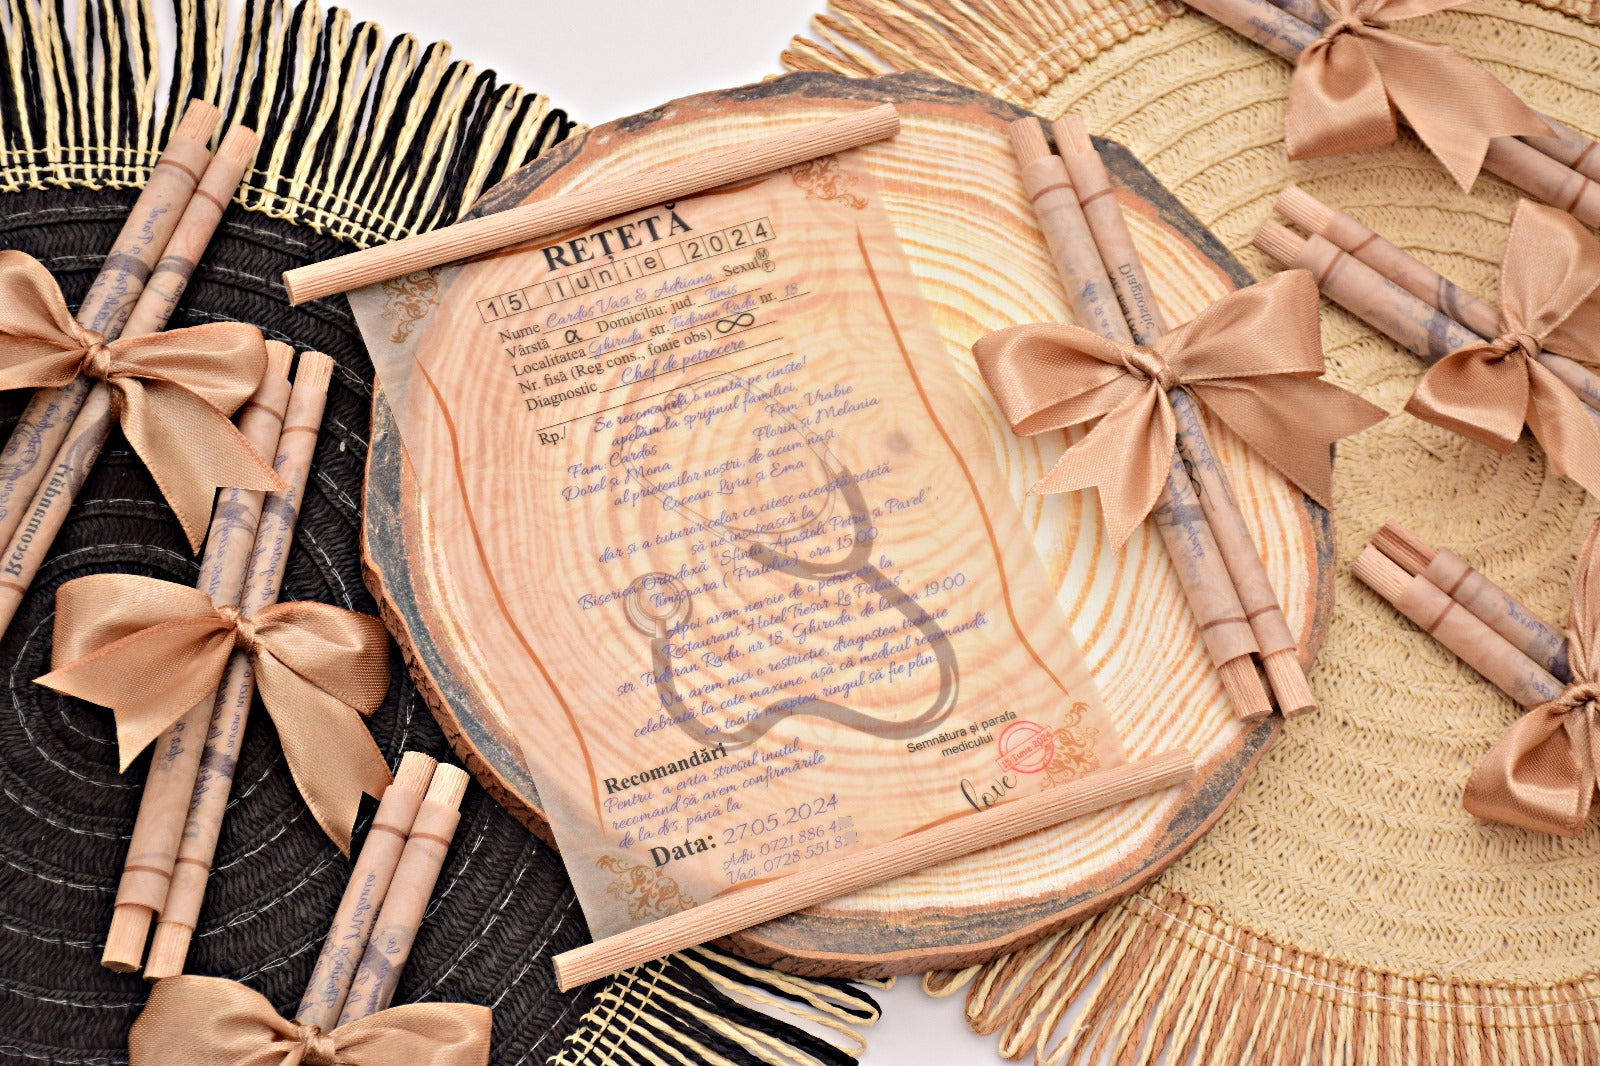 REȚETĂ
15 Iunie 2024
Nume Cardoș Vasi & Adriana Sexul M F
Vârstă α Domiciliu: jud. Timiș
Localitatea Ghiroda str. Tudoran Radu nr. 18
Nr. fisă (Reg cons., foaie obs) ∞
Diagnostic Chef de petrecere
Rp./ Se recomandă o nuntă pe cinste!
apelăm la sprijinul familiei,
Fam. Cardoș Fam. Vrabie
Dorel și Mona Florin și Melania
al prietenilor noștri, de acum nași,
Cocean Liviu și Ema
dar și a tuturor celor ce citesc această rețetă
să ne însoțească la
Biserica Ortodoxă "Sfinții Apostoli Petru și Pavel",
Timișoara ( Fratelia), ora 15.00
Apoi avem nevoie de o petrecere la
Restaurant "Hotel Tresor Le Palais",
str. Tudoran Radu, nr 18, Ghiroda, de la ora 19.00
Nu avem nici o restricție, diagostea trebuie
celebrată la cote maxime, așă că medicul recomandă
ca toată noaptea ringul să fie plin
Semnătura și parafa
medicului
15 Iunie 2024
love
Recomandări
Pentru a evita stresul inutil,
recomand să avem confirmările
de la dvs. până la
Data: 27.05.2024
Adri 0721 886 4
Vasi 0728 551 8
Recomandări
Diagnostic